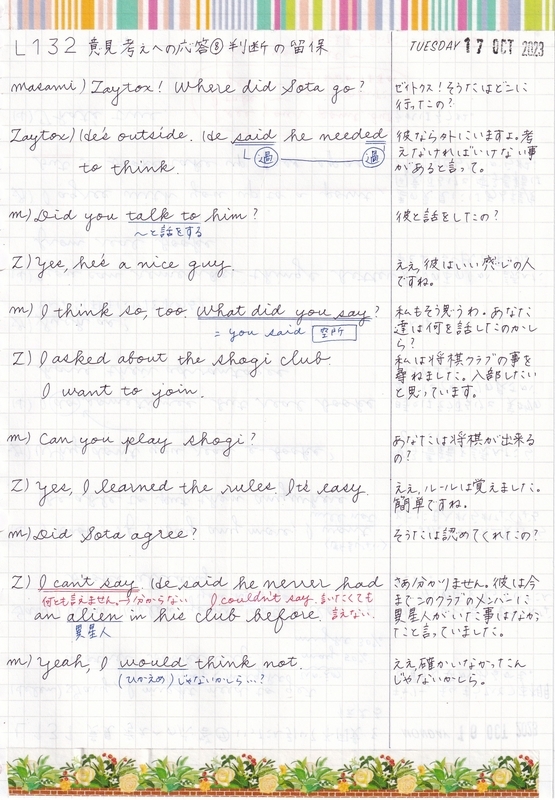 L132 意見考えへの応答⑧判断の留保 TUESDAY 17 OCT 2023
masami) Zaytox! Where did Sota go?
ゼイトクス!そうたはどこに
行ったの?
Zaytox) He's outside. He said he needed
過 過
to think.
彼なら外にいますよ。考
えなければいけない事
があると言って。
m) Did you talk to him?
〜と話をする
彼と話をしたの?
Z) Yes, he's a nice guy.
ええ、彼はいい感じの人
ですね。
m) I think so, too. What did you say?
= you said 空所
私もそう思うわ。あなた
達は何を話したのかし
ら?
Z) I asked about the shogi club.
I want to join.
私は将棋クラブの事を
尋ねました。入部したい
と思っています。
m) Can you play shogi?
あなたは将棋が出来る
の?
Z) Yes, I learned the rules. It's easy.
ええ、ルールは覚えました。
簡単ですね。
m) Did Sota agree?
そうたは認めてくれたの?
Z) I can't say. He said he never had
何とも言えません。→分からない I couldn't say. 言いたくても
言えない.
an alien in his club before.
異星人
さあ分かりません。彼は今
までこのクラブのメンバーに
異星人がいた事はなかっ
たと言っていました。
m) Yeah, I would think not.
(ひかえめ)じゃないかしら…?
ええ、確かいなかったん
じゃないかしら。